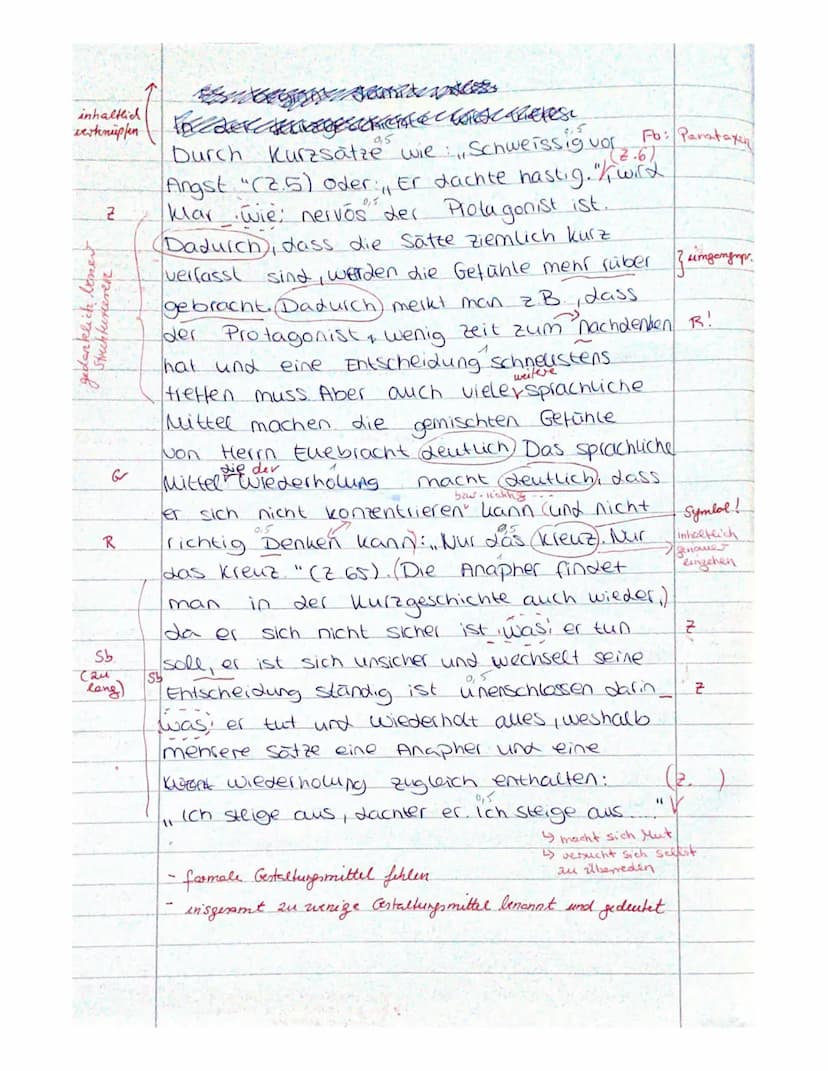 inhaltlich
verknüpfen
Durch Kurzsätze wie: „Schweissig vor
0,5
0,5
Fb: Parataxen
Angst "(Z.5) oder: „Er dachte hastig." , wird
(Z.6)
Z
klar wie: nervös der Protagonist ist.
0,5
Dadurch, dass die Sätze ziemlich kurz
gedanklich besser
strukturieren
verfasst sind, werden die Gefühle mehr rüber
umgangspr.
gebracht. Dadurch merkt man z.B , dass
der Protagonist wenig zeit zum nachdenken
R!
hat und eine Entscheidung schnellstens
treffen muss. Aber auch viele sprachliche
weitere
Mittel machen die gemischten Gefühle
von Herrn deutlich Das sprachliche
G
Mittel Wiederholung macht deutlich, dass
die der
er sich nicht konzentrieren kann (und nicht
bzw. richtig ...
Symbol!
R
richtig Denken kann): „Nur das Kreuz. Nur
0,5
0,5
inhaltlich
genauer
eingehen
das Kreuz. "(Z 65). (Die Anapher findet
man in der Kurzgeschichte auch wieder,)
da er sich nicht sicher ist was, er tun
Z
Sb
(zu
lang)
soll, er ist sich unsicher und wechselt seine
Sb
Entscheidung ständig ist unerschlossen darin
0,5
Z
was, er tut und wiederholt alles, weshalb
mehrere Sätze eine Anapher und eine
Wiederholung zugleich enthalten:
(Z. )
„Ich steige aus, dachter er. Ich steige aus...."
0,5
↳ macht sich Mut
↳ versucht sich selbst
zu überreden
- formale Gestaltungsmittel fehlen
- insgesamt zu wenige Gestaltungsmittel benannt und gedeutet